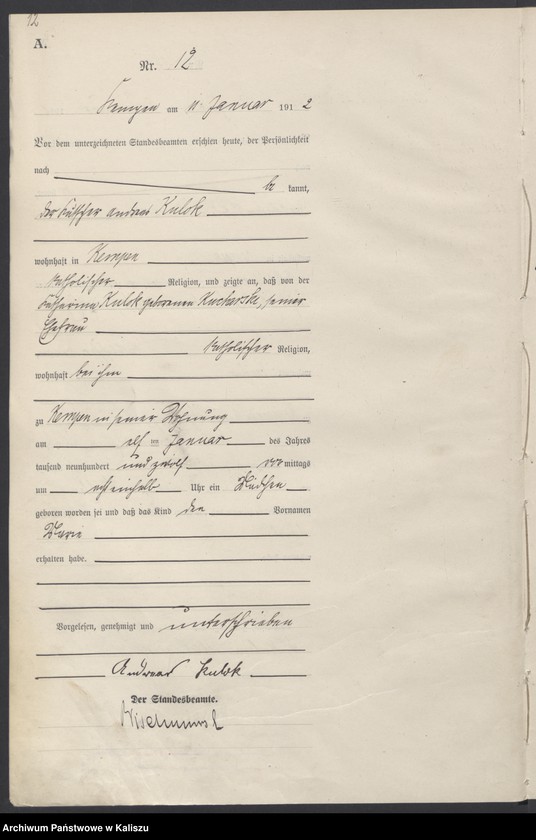 12
A.
Nr. 12
Kempen am 11 Januar 1912
Vor dem unterzeichneten Standesbeamten erschien heute, der Persönlichkeit
nach
be kannt,
der Kutscher Andreas Kulok
wohnhaft in Kempen
katholischer Religion, und zeigte an, daß von der
Katharina Kulok geborenen Kucharska, seiner
Ehefrau
katholischer Religion,
wohnhaft bei ihm
zu Kempen in seiner Wohnung
am elf ten Januar des Jahres
tausend neunhundert und zwölf vor mittags
um acht einhalb Uhr ein Mädchen
geboren worden sei und daß das Kind den Vornamen
Marie
erhalten habe.
Vorgelesen, genehmigt und unterschrieben
Andreas Kulok
Der Standesbeamte.
Archiwum Państwowe w Kaliszu